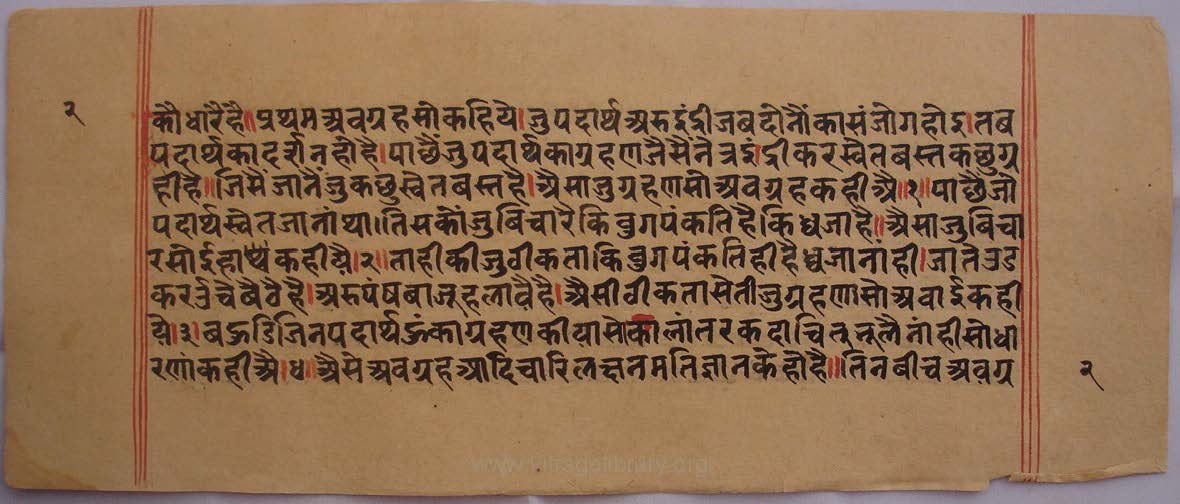 २
कौधारैहै॥प्रथमअवग्रहसोकहिये।जुपदार्थअरुइंद्रीजबदोनौंकासंजोगहोइ।तब
पदार्थकादर्शनहोहै।पाछैंजुपदार्थकाग्रहणजैसैंनेत्रइंद्रीकरस्वेतबस्तकछुग्र
हीहै॥जिसैंजानैंजुकछुस्वेतबस्तहै।अैसाजुग्रहणसोअवग्रहकहीअै॥१॥पाछैजो
पदार्थस्वेतजानांथा।तिसकौंजुबिचारैकिबुगपंकतिहै।किधुजाहै॥अैसाजुबिचा
रसोईहाकहीयै।२॥ताहीकीजुवीकताकिबुगपंकतिहीहैधुजानांही।जातैउड
करउंचैबैवैहै।अरुपंषबाजूहलावैहै।अैसीवीकतासेतीजुग्रहणसोअवाईकही
यै।३।बहुडिजिनपदार्थहुंकाग्रहणकीयासोकालांतरकदाचितुनूलैनांहीसोधा
रणांकहीअै।ध।अैसेअवग्रहआदिचारिलछनमतिज्ञानकेहोहै॥तिनबीचअवग्र
२
www.vitragelibrary.org